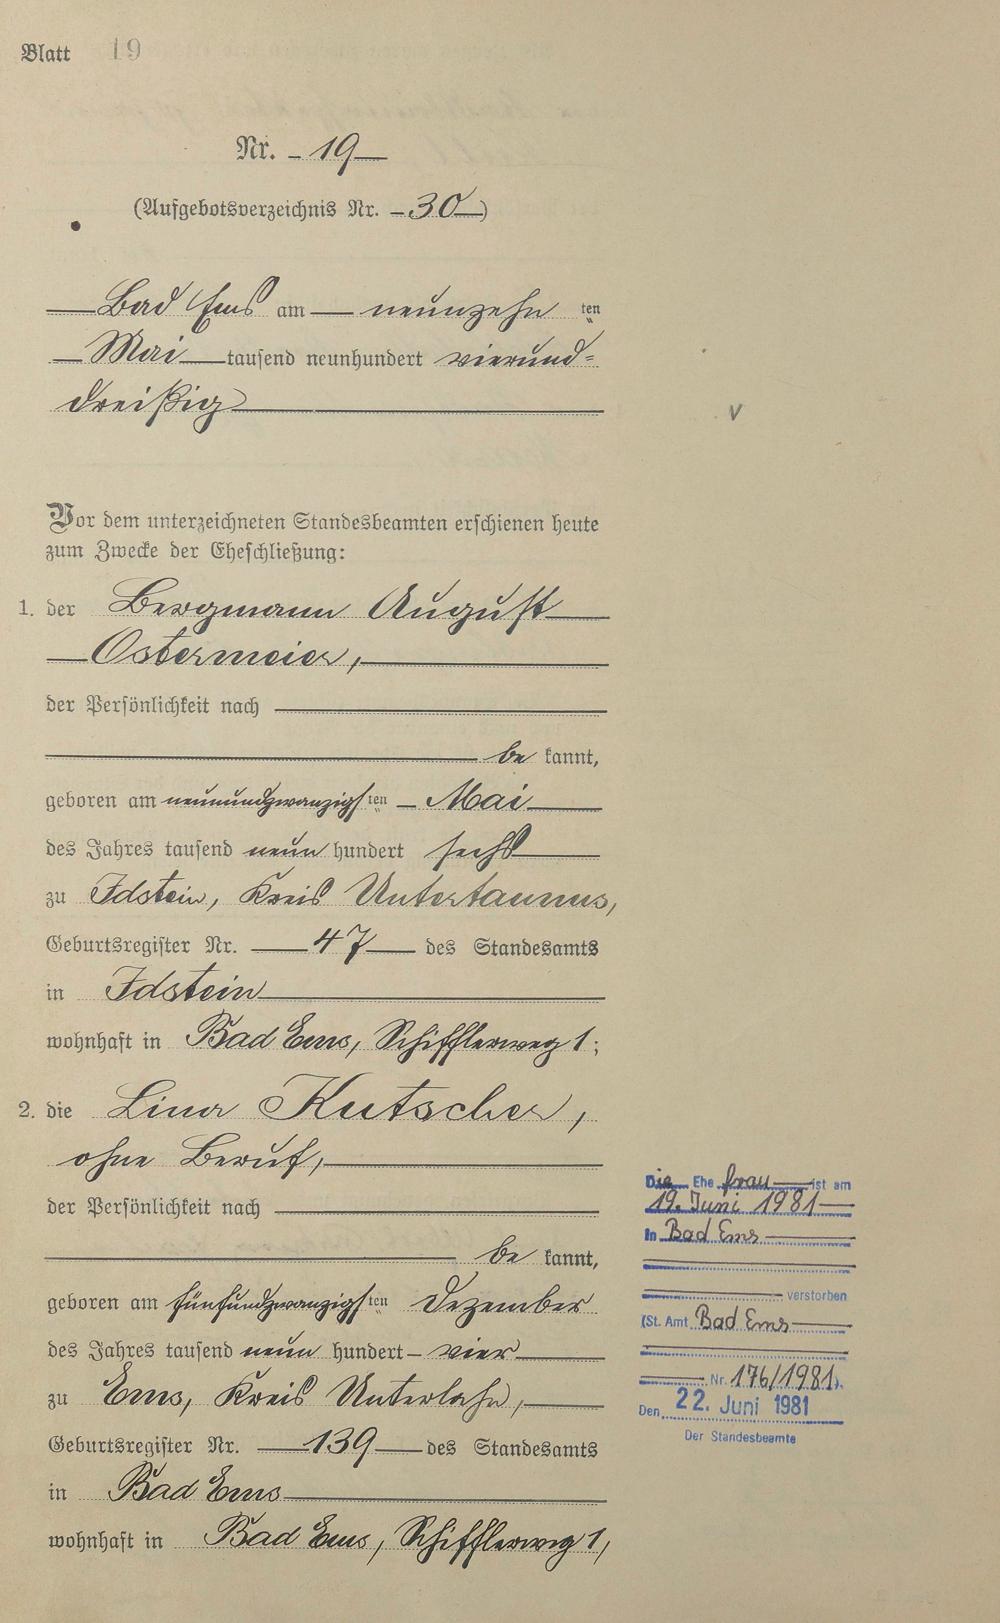 Blatt 19
Nr. 19
(Aufgebotsverzeichnis Nr. 30)
Bad Ems am neunzehn ten
Mai tausend neunhundert vierund=
dreißig
Vor dem unterzeichneten Standesbeamten erschienen heute
zum Zwecke der Eheschließung:
1. der Bergmann August
Ostermeier,
der Persönlichkeit nach
be kannt,
geboren am neunundzwanzigsten Mai
des Jahres tausend neun hundert sechs
zu Idstein, Kreis Untertaunus,
Geburtsregister Nr. 47 des Standesamts
in Idstein
wohnhaft in Bad Ems, Schifflerweg 1;
2. die Lina Kutscher,
ohne Beruf,
der Persönlichkeit nach
be kannt,
geboren am fünfundzwanzigsten Dezember
des Jahres tausend neun hundert vier
zu Ems, Kreis Unterlahn,
Geburtsregister Nr. 139 des Standesamts
in Bad Ems
wohnhaft in Bad Ems, Schifflerweg 1,
Die Ehe frau ist am
19. Juni 1981
in Bad Ems
verstorben
(St. Amt Bad Ems
Nr. 176/1981).
Den 22. Juni 1981
Der Standesbeamte